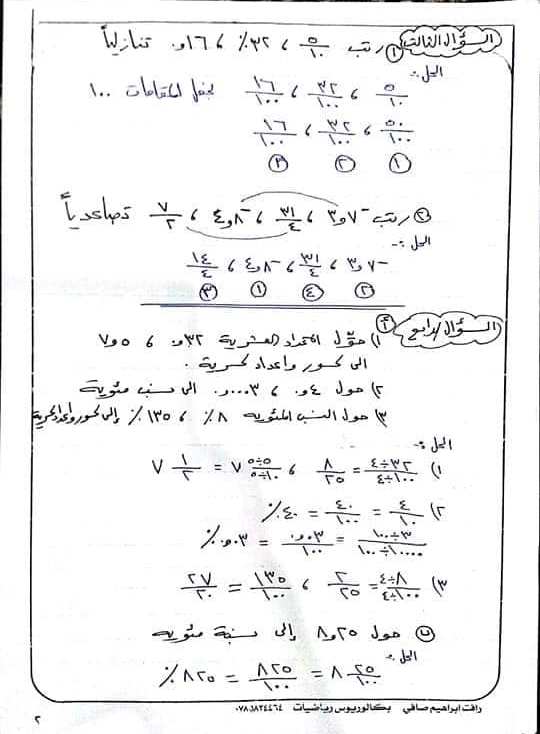 السؤال الثالث
١) رتب ٥/١٠ ، ٣٢٪ ، ١٦و٠ تنازلياً
الحل :-
٥/١٠ ، ٣٢/١٠٠ ، ١٦/١٠٠ بجعل المقامات ١٠٠
٥٠/١٠٠ ، ٣٢/١٠٠ ، ١٦/١٠٠
١ ٢ ٣
٢) رتب -٧و٣ ، ٣١/٤ ، -٨و٤ ، ٧/٢ تصاعدياً
الحل :-
-٧و٣ ، ٣١/٤ ، -٨و٤ ، ١٤/٤
٢ ٤ ١ ٣
السؤال الرابع
أ) ١) حوّل الأعداد العشرية ٣٢و٠ ، ٥و٧
الى كسور واعداد كسرية .
٢) حول ٤و٠ ، ٠٠٠٣و٠ الى نسب مئوية
٣) حول النسب المئويه ٨٪ ، ١٣٥٪ إلى كسور واعداد كسرية
الحل :-
١) ٣٢÷٤/١٠٠÷٤ = ٨/٢٥ ، ٧ ٥÷٥/١٠÷٥ = ٧ ١/٢
٢) ٤/١٠ = ٤٠/١٠٠ = ٤٠٪
٣÷١٠٠/١٠٠٠٠÷١٠٠ = ٠٣و٠/١٠٠ = ٠٣و٠٪
٣) ٨÷٤/١٠٠÷٤ = ٢/٢٥ ، ١٣٥/١٠٠ = ٢٧/٢٠
ب) حول ٢٥و٨ إلى نسبة مئويه
الحل :-
٨ ٢٥/١٠٠ = ٨٢٥/١٠٠ = ٨٢٥٪
رافت ابراهيم صافي بكالوريوس رياضيات
٢